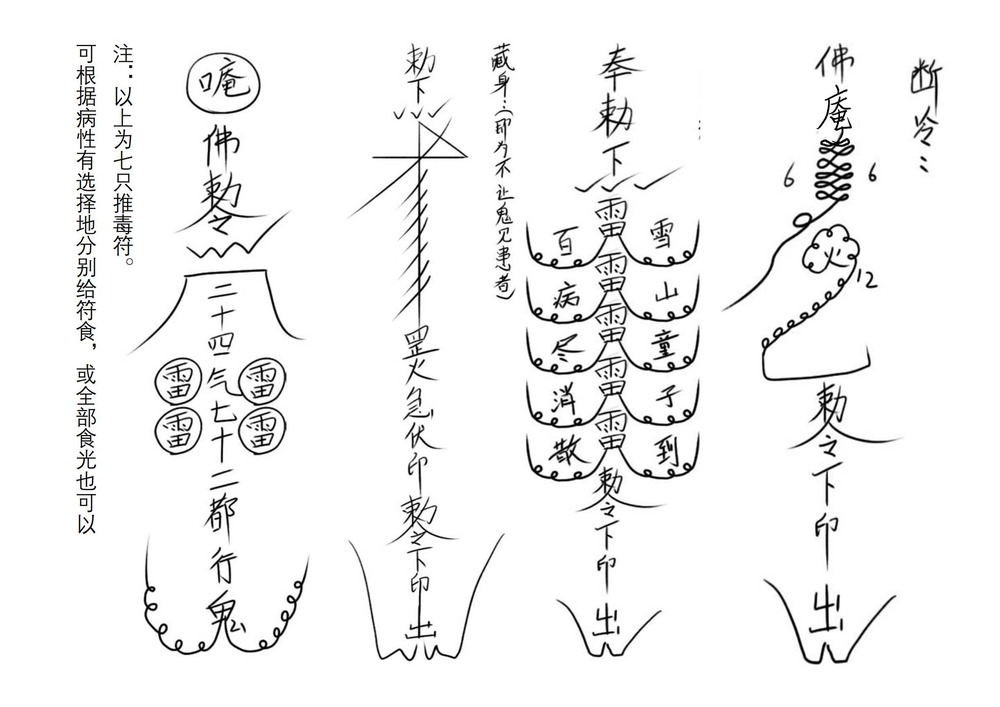 断冷：
佛
庵
6 6
火
12
勅令下印出
奉勅下
雷雷雷雷雷
雪山童子到
百病尽消散
勅令下印出
藏身：（即为不让鬼见患者）
勅下
罡火急伏印勅令下印出
唵
佛勅令
二十四气七十二都行鬼
雷 雷
雷 雷
注：以上为七只推毒符。
可根据病性有选择地分别给符食，或全部食光也可以